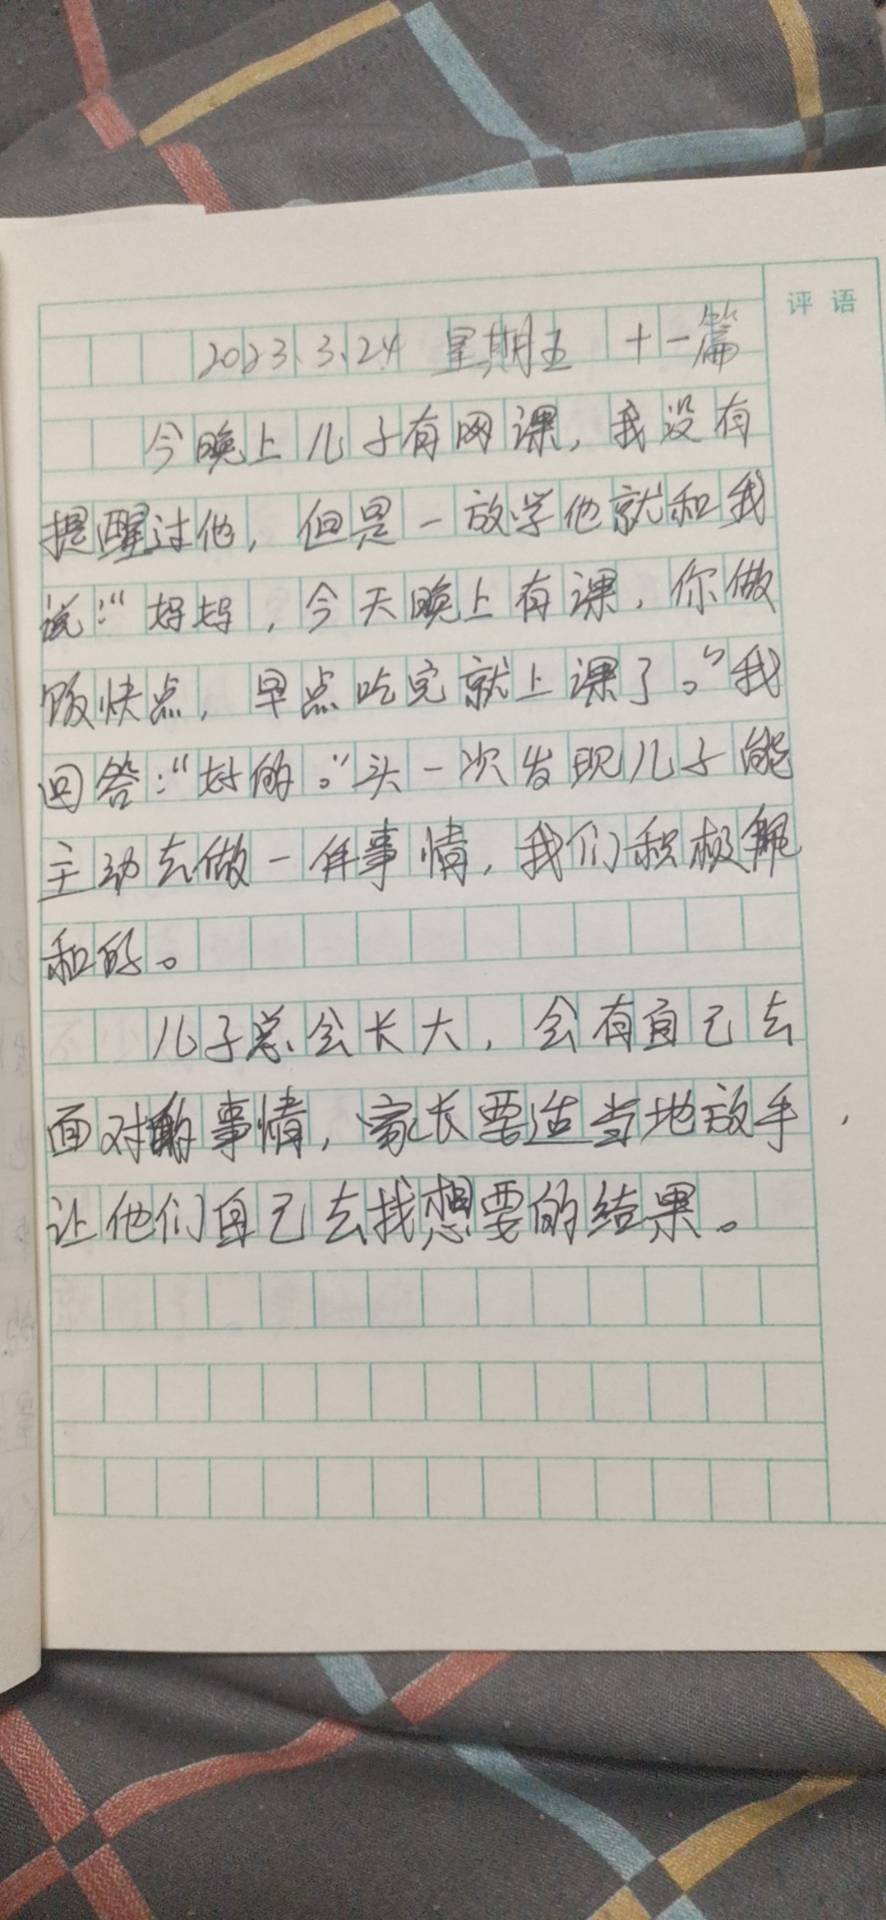 评 语
2023.3.24 星期五 十一篇
今晚上儿子有网课，我没有
提醒过他，但是一放学他就和我
说：“妈妈，今天晚上有课，你做
饭快点，早点吃完就上课了。”我
回答：“好的。”头一次发现儿子能
主动去做一件事情，我们积极配
和好。
儿子总会长大，会有自己去
面对的事情，家长要适当地放手，
让他们自己去找想要的结果。